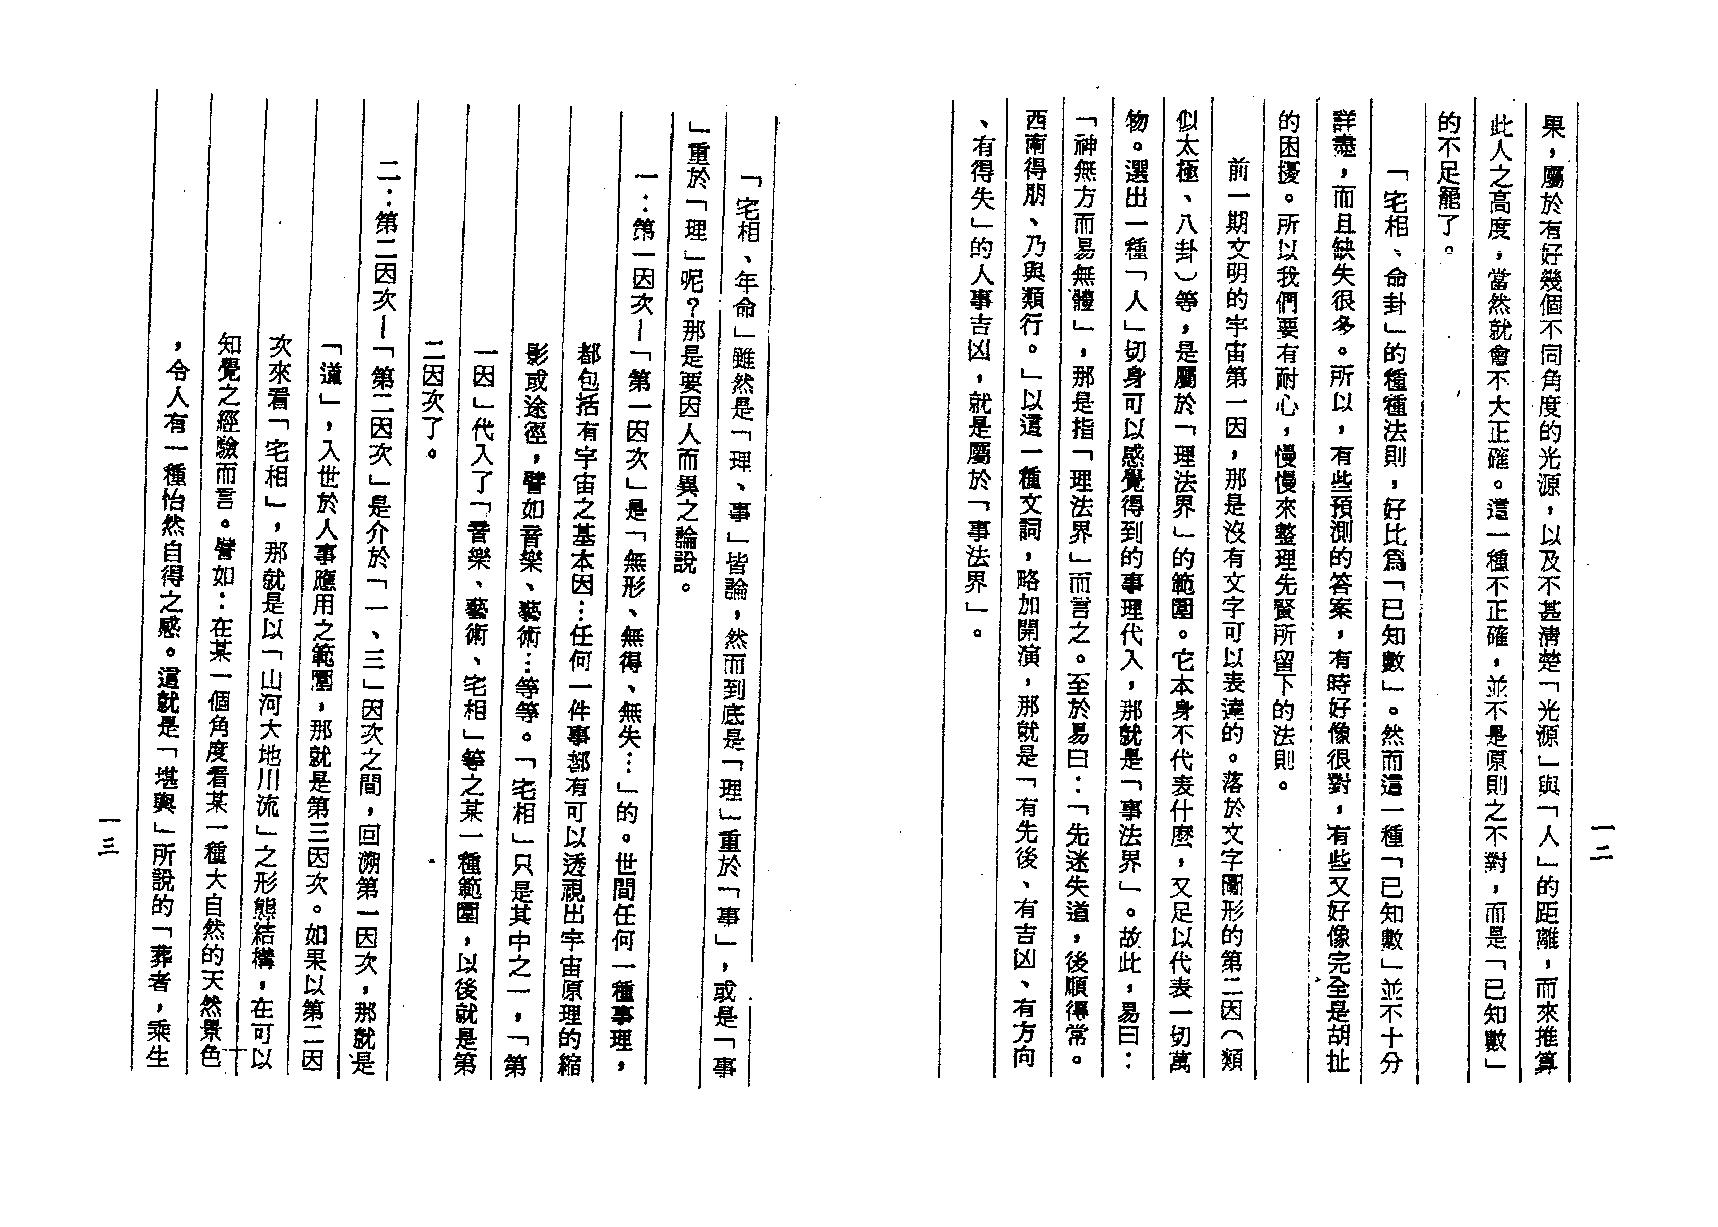 一二
果，屬於有好幾個不同角度的光源，以及不甚清楚「光源」與「人」的距離，而來推算
此人之高度，當然就會不大正確。這一種不正確，並不是原則之不對，而是「已知數」
的不足罷了。
「宅相、命卦」的種種法則，好比為「已知數」。然而這一種「已知數」並不十分
詳盡，而且缺失很多。所以，有些預測的答案，有時好像很對，有些又好像完全是胡扯
的困擾。所以我們要有耐心，慢慢來整理先賢所留下的法則。
前一期文明的宇宙第一因，那是沒有文字可以表達的。落於文字圖形的第二因（類
似太極、八卦）等，是屬於「理法界」的範圍。它本身不代表什麼，又足以代表一切萬
物。選出一種「人」切身可以感覺得到的事理代入，那就是「事法界」。故此，易曰：
「神無方而易無體」，那是指「理法界」而言之。至於易曰：「先迷失道，後順得常。
西南得朋、乃與類行。」以這一種文詞，略加開演，那就是「有先後、有吉凶、有方向
、有得失」的人事吉凶，就是屬於「事法界」。
「宅相、年命」雖然是「理、事」皆論，然而到底是「理」重於「事」，或是「事
」重於「理」呢？那是要因人而異之論說。
一：第一因次—「第一因次」是「無形、無得、無失…」的。世間任何一種事理，
都包括有宇宙之基本因…任何一件事都有可以透視出宇宙原理的縮
影或途徑，譬如音樂、藝術…等等。「宅相」只是其中之一，「第
一因」代入了「音樂、藝術、宅相」等之某一種範圍，以後就是第
二因次了。
二：第二因次—「第二因次」是介於「一、三」因次之間，回溯第一因次，那就是
「道」，入世於人事應用之範圍，那就是第三因次。如果以第二因
次來看「宅相」，那就是以「山河大地川流」之形態結構，在可以
知覺之經驗而言。譬如：在某一個角度看某一種大自然的天然景色
，令人有一種怡然自得之感。這就是「堪輿」所說的「葬者，乘生
一三